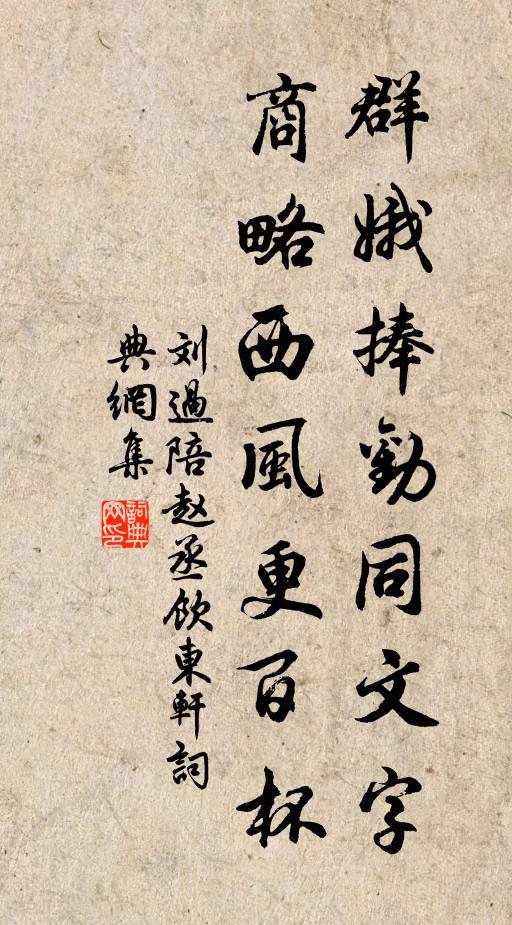 群娥捧劝同文字
商略西風更百杯
刘過陪赵丞飲東軒詞
典網集
詞典
网印